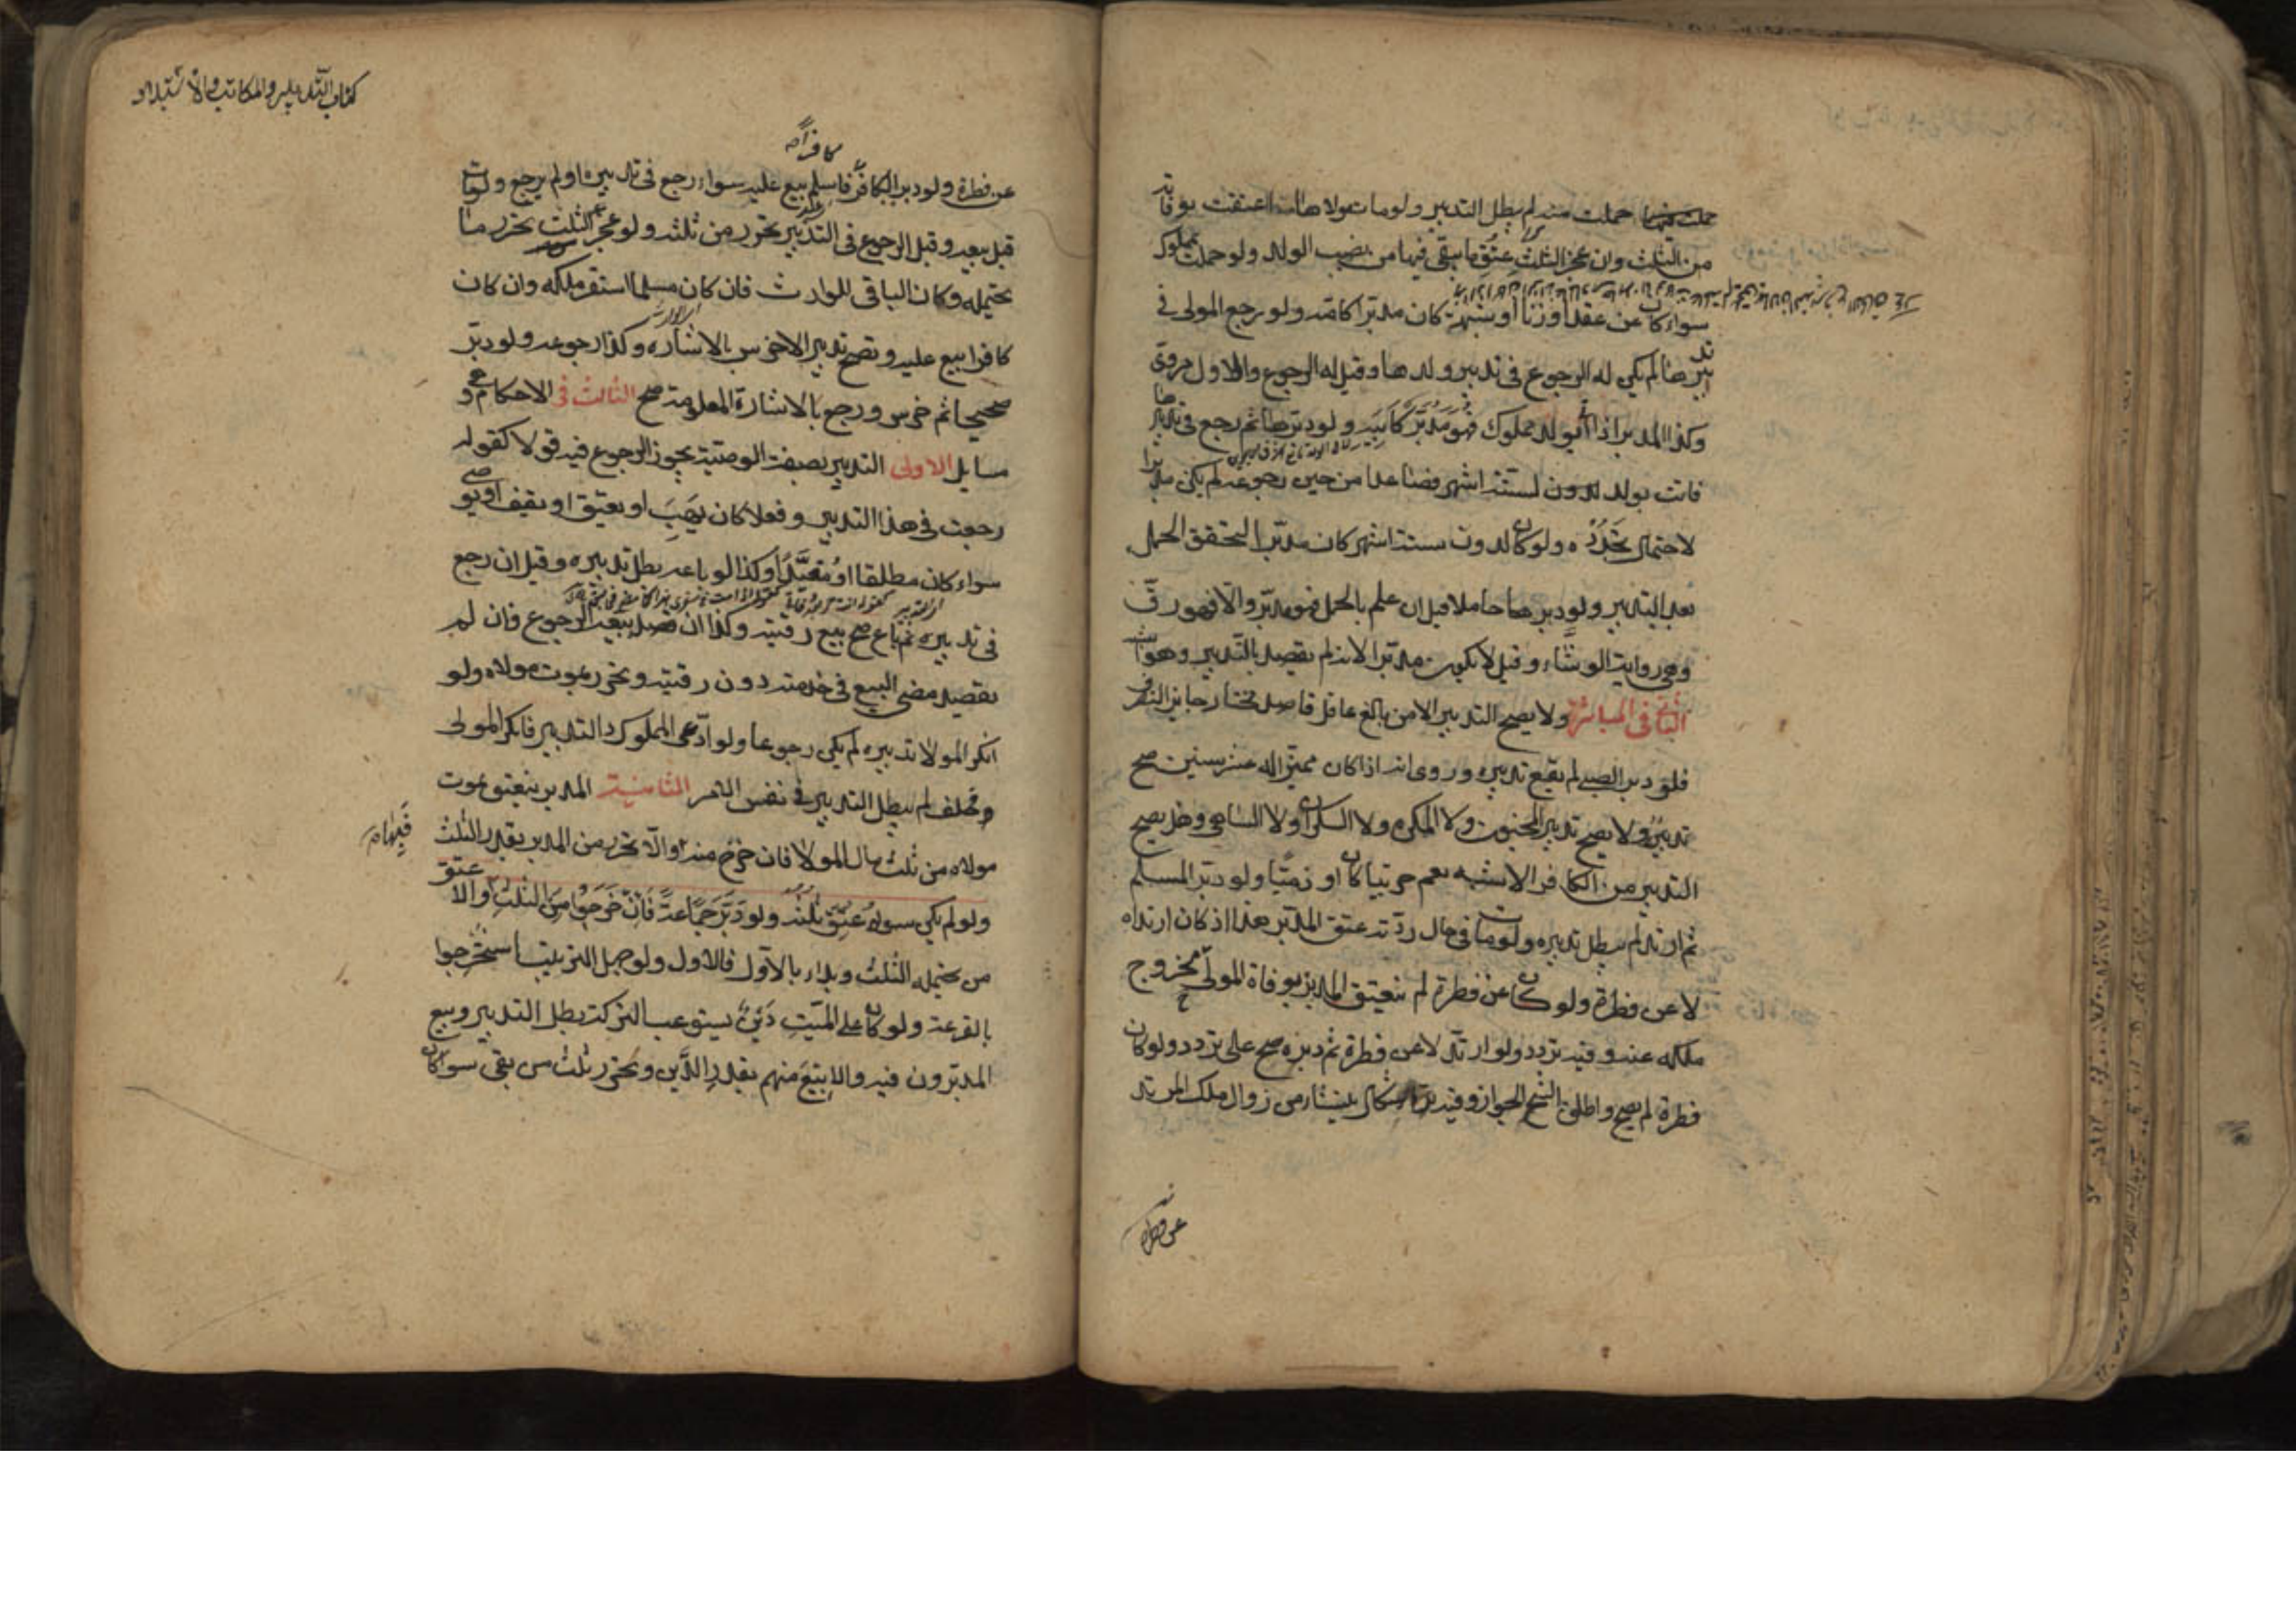 حملت منه لم يبطل التدبير ولو مات مولاها اعتقت بوفاته
من الثلث وان عجز الثلث عتق ما بقي فيها من نصيب الولد ولو حملت بمملوك
سواء كان عن عقد او زنا او شبهة كان مدبرا كامه ولو رجع المولى في
تدبيرها لم يكن له الرجوع في تدبير ولدها وقيل له الرجوع والاول مروي
وكذا المدبر اذا اتى بولد مملوك فهو مدبر كابيه ولو دبرها ثم رجع في تدبيرها
فاتت بولد لستة اشهر فصاعدا من حين رجوعه لم يكن مدبرا
لاحتمال تجدده ولو كان لدون ستة اشهر كان مدبرا لتحقق الحمل
بعد التدبير ولو دبرها حاملا قيل ان علم بالحمل فهو مدبر والا فهو رق
وهي رواية الوشاء وقيل لا يكون مدبرا لانه لم يقصد بالتدبير وهو اشبه
الثاني في المباشر ولا يصح التدبير الا من بالغ عاقل قاصد مختار جايز التصرف
فلو دبر الصبي لم يقع تدبيره وروي انه اذا كان مميزا له عشر سنين صح
تدبيره ولا يصح تدبير المجنون ولا المكره ولا السكران ولا الساهي وهل يصح
التدبير من الكافر الاشبه نعم حربيا كان او ذميا ولو دبر المسلم
ثم ارتد لم يبطل تدبيره ولو مات في حال ردته عتق المدبر هذا اذ كان ارتداه
لا عن فطرة ولو كان عن فطرة لم ينعتق المدبر بوفاة المولى لخروج
ملكه عنه وفيه تردد ولو ارتد لا عن فطرة ثم دبره صح على تردد ولو كان
فطرة لم يصح واطلق الشيخ الجواز وفيه اشكال ينشاء من زوال ملك المرتد
عن فطرة
كتاب التدبير والمكاتبة والاستيلاد
كافرا
عن فطرة ولو دبر الكافر فاسلم بيع عليه سواء رجع في تدبيره او لم يرجع ولو مات
قبل بيعه وقبل الرجوع في التدبير تحرر من ثلثه ولو عجز الثلث تحرر ما
يحتمله وكان الباقي للوارث فان كان مسلما استقر ملكه وان كان
كافرا بيع عليه ويصح تدبير الاخرس بالاشاره وكذا رجوعه ولو دبر
صحيحا ثم خرس ورجع بالاشارة المعلومة صح الثالث في الاحكام وهي
مسايل الاولى التدبير بصفة الوصية يجوز الرجوع فيه قولا كقوله
رجعت في هذا التدبير وفعلا كان يهب او يعتق او يقف او يوصي
سواء كان مطلقا او مقيدا وكذا لو باعه بطل تدبيره وقيل ان رجع
في تدبيره ثم باع صح بيع رقيته وكذا ان قصد ببيعه الرجوع فان لم
يقصد مضى البيع في خدمته دون رقبته وتحرر بموت مولاه ولو
انكر المولا تدبيره لم يكن رجوعا ولو ادعى المملوك التدبير فانكر المولى
وحلف لم يبطل التدبير في نفس الامر الثانية المدبر ينعتق بموت
مولاه من ثلث مال المولا فان خرج منه والا تحرر من المدبر بقدر الثلث
ولو لم يكن سواه عتق ثلثه ولو دبر جماعة فان خرجوا من الثلث والا عتق
من يحتمله الثلث وبداء بالاول فالاول ولو جهل الترتيب استخرجوا
بالقرعة ولو كان على الميت دين يستوعب التركة بطل التدبير وبيع
المدبرون فيه والا بيع منهم بقدر الدين وتحرر ثلث من بقي سواء كان